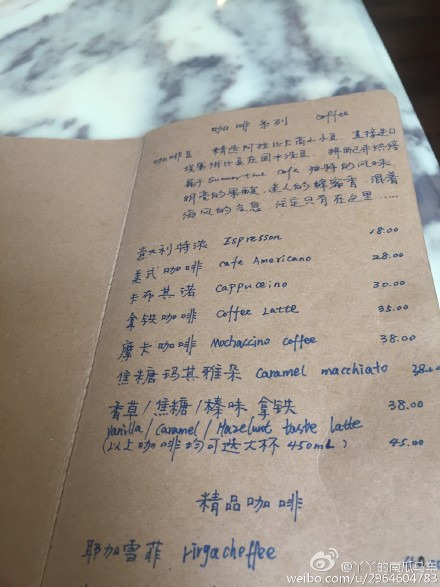 咖啡系列 Coffee
咖啡豆 精选阿拉比卡高山豆, 直接进口
埃塞俄比亚在国水洗豆, 拼配并烘焙
属于 Summertime Cafe 独特的风味
明亮的果酸、迷人的蜂蜜香 混着
海风的气息 注定只有在这里……
意大利特浓 Espresson 18.00
美式咖啡 cafe Americano 28.00
卡布其诺 Cappuccino 30.00
拿铁咖啡 Coffee Latte 35.00
摩卡咖啡 Mochaccino coffee 38.00
焦糖玛其雅朵 Caramel macchiato 38.00
香草/焦糖/榛味 拿铁 38.00
Vanilla/Caramel/Hazelunt taste latte
(以上咖啡均可选大杯 450mL) 45.00
精品咖啡
耶加雪菲 rirgacheffee
@丫丫的南瓜马车
weibo.com/u/2964604783